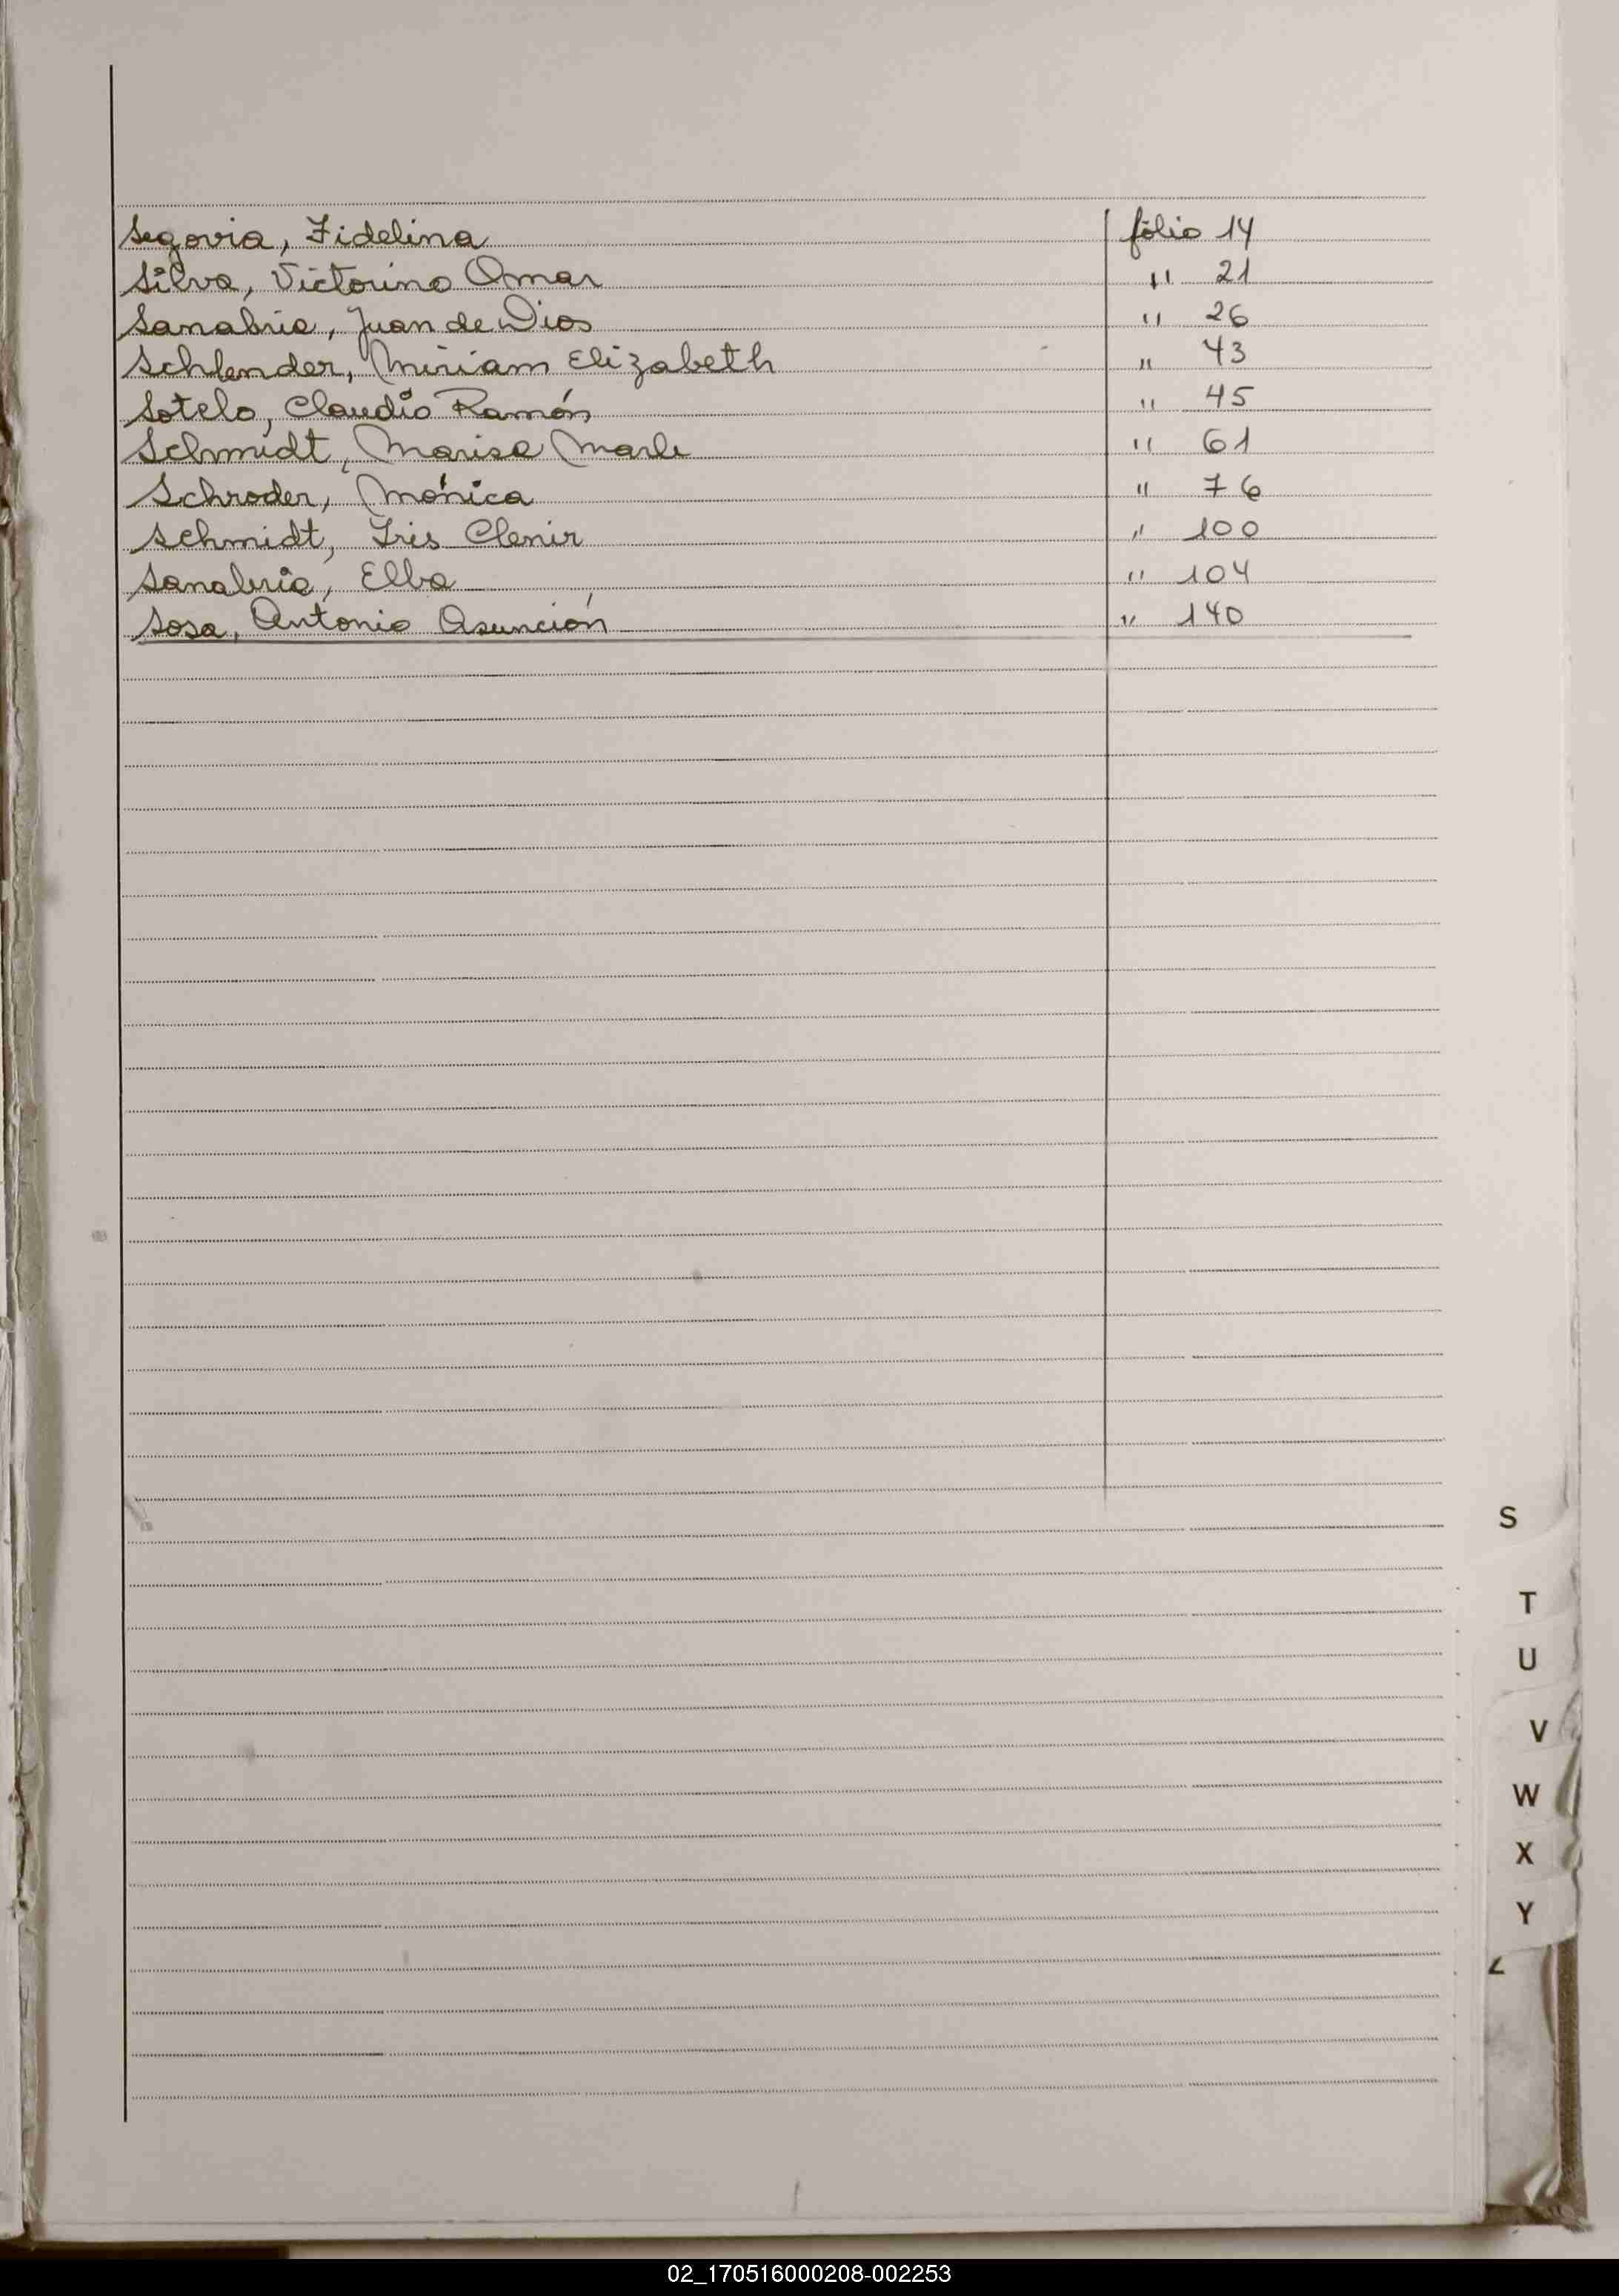 Segovia, Fidelina folio 14
Silva, Victorino Omar " 21
Sanabria, Juan de Dios " 26
Schlender, Miriam Elizabeth " 43
Sotelo, Claudio Ramón " 45
Schmidt, Marisa Marli " 61
Schroder, Mónica " 76
Schmidt, Iris Clenir " 100
Sanabria, Elba " 104
Sosa, Antonio Asunción " 140
S
T
U
V
W
X
Y
Z
02_170516000208-002253